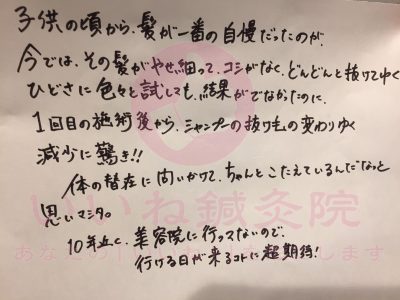 子供の頃から、髪が一番の自慢だったのが、
今では、その髪がやせ細って、コシがなく、どんどんと抜けてゆく
ひどさに色々と試しても、結果がでなかったのに、
1回目の施術後から、シャンプーの抜け毛の変わりゆく
減少に驚き!!
体の潜在に問いかけて、ちゃんとこたえているんだなっと
思いマシタ。
10年近く、美容院に行ってないので、
行ける日が来るコトに超期待!
いいね鍼灸院
あな
します